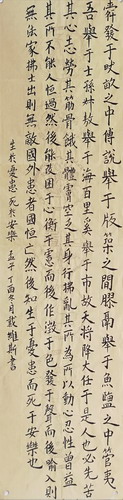 舜發于畎畝之中傅說舉于版築之間膠鬲舉于魚鹽之中管夷
吾舉于士孫叔敖舉于海百里奚舉于市故天將降大任于是人也必先苦
其心志勞其筋骨餓其體膚空乏其身行拂亂其所為所以動心忍性曾益
其所不能人恒過然後能改困于心衡于慮而後作徵于色發于聲而後喻入則
無法家拂士出則無敵國外患者國恒亡然後知生于憂患而死于安樂也
生於憂患 死於安樂 孟子 丁酉冬月戴維斯書